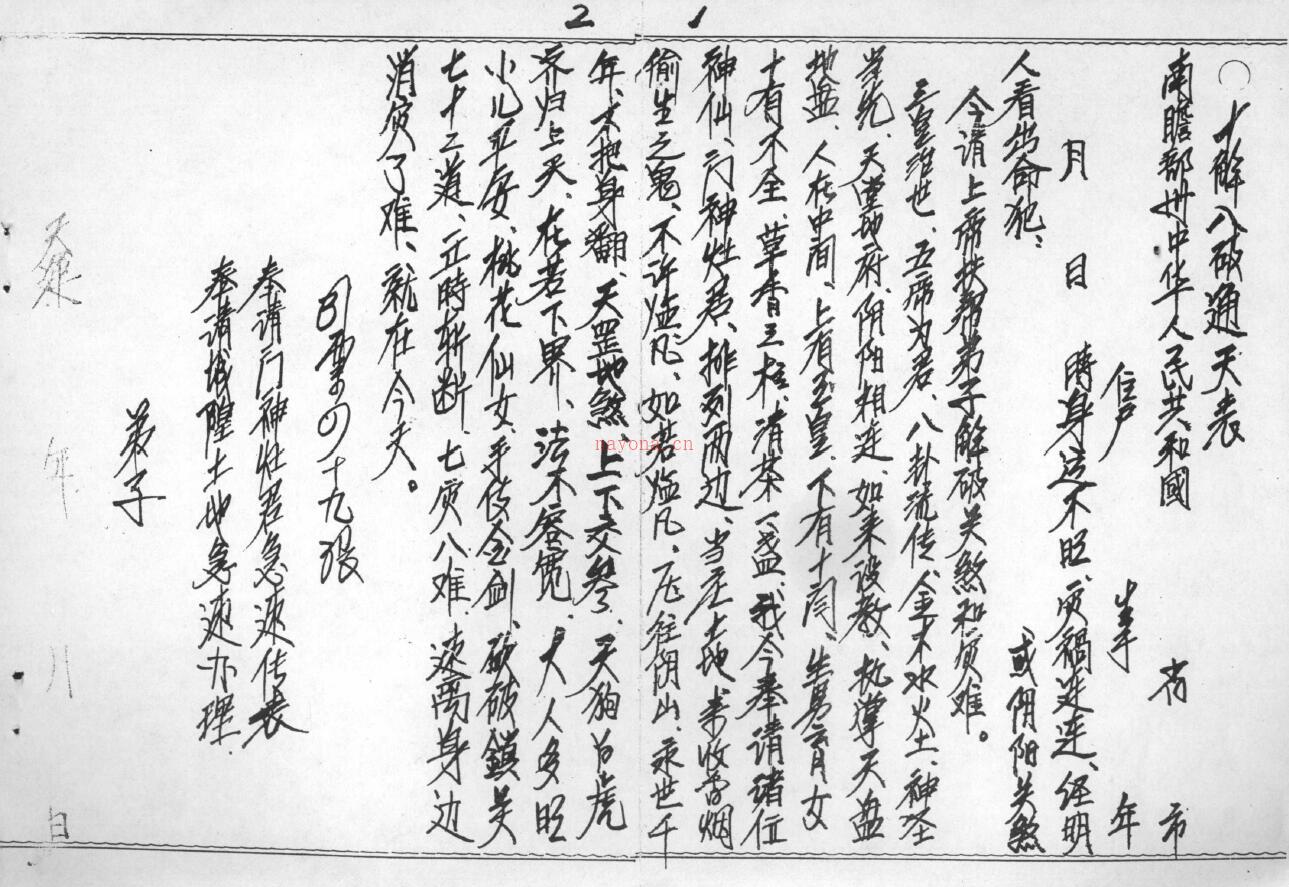 1
2
十解八破通天表
南瞻部州中华人民共和國 省 市
信户 生于 年
月 日 時身运不旺、灾禍连连、经明
人看出命犯: 或阴阳关煞
今请上帝扶帮弟子解破关煞和灾难。
三皇治世、五帝为君、八卦流传、金木水火土、神圣
当先、天堂地府、阴阳相连、如来设教、执掌天盘
地盘、人在中间、上有玉皇、下有十阎、生男育女
十有不全、草香三柱、清茶一盏、我今奉请诸位
神仙、门神灶君、排列两边、当庄土地来收香烟
偷生之鬼、不许临凡、如若临凡、压往阴山、永世千
年、不把身翻、天罡地煞、上下交参、天狗白虎
齐归上天、在若下界、法不容宽、大人多旺
小儿平安、桃花仙女、手仗金剑、砍破鎖关
七十二道、立時斩断、七灾八难、速离身边
消灾了难、就在今天。
引四十九张
奉请门神灶君急速传表
奉请城隍土地急速办理.
弟子
天缘 年 月 日
nayona.cn